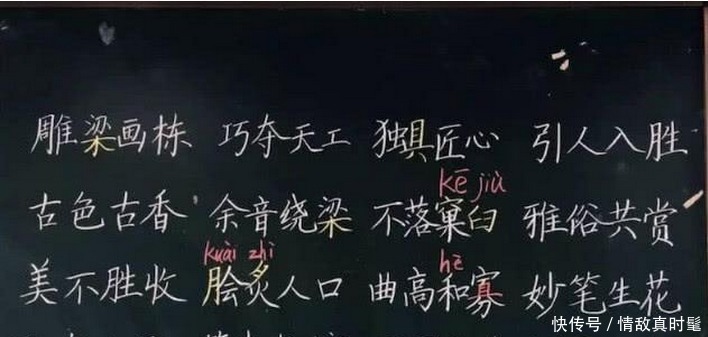 雕梁画栋 巧夺天工 独具匠心 引人入胜
kē jiù
古色古香 余音绕梁 不落窠臼 雅俗共赏
kuài zhì hè
美不胜收 脍炙人口 曲高和寡 妙笔生花
快传号/情敌真时髦